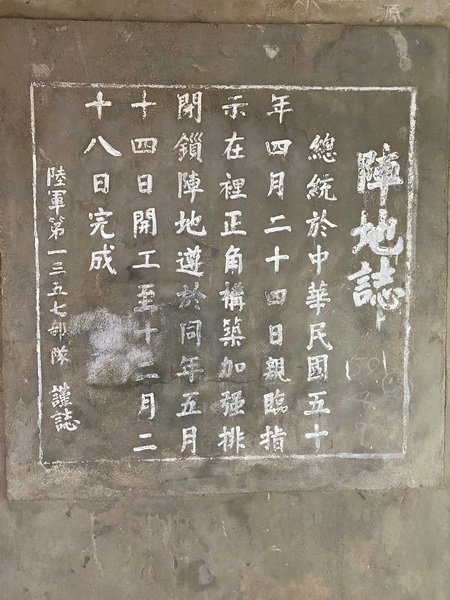 陣地誌
總統於中華民國五十
年四月二十四日親臨指
示在裡正角構築加强排
閉鎖陣地遵於同年五月
十四日開工至十二月二
十八日完成
陸軍第一三五七部隊 謹誌